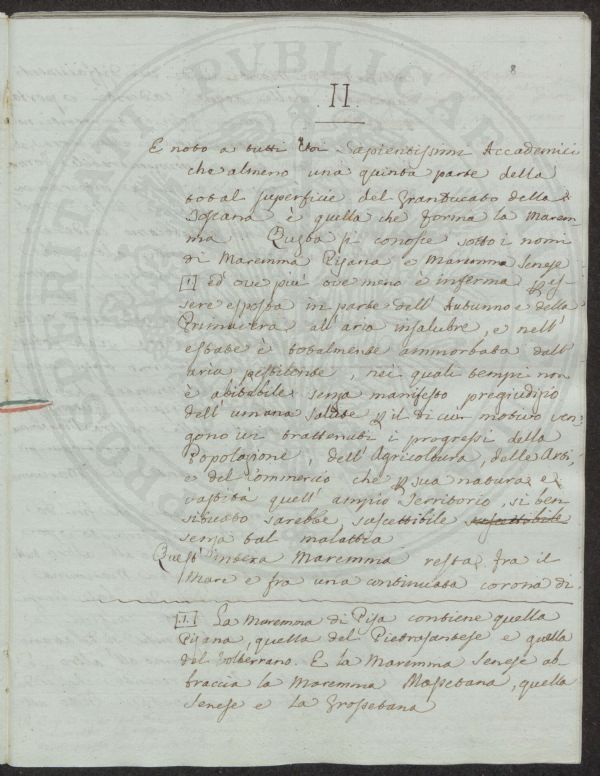 8
.II.
E noto a tutti Voi Sapientissimi Accademici
che almeno una quinta parte della
total superficie del GranDucato della
Toscana è quella che forma la Marem
ma Questa si conosce sotto i nomi
di Maremma Pisana e Maremma Senese
[1] ed ove più ove meno è inferma p es
sere esposta in parte dell' Autunno e della
Primavera all' aria insalubre, e nell'
estate è totalmente ammorbata dall'
aria pestilente, nei quali tempi non
è abitabile senza manifesto pregiudizio
dell' umana salute p il di cui motivo ven=
gono ivi trattenuti i progressi della
Popolazione, dell' Agricoltura, delle Arti,
e del Commercio che p sua natura e
vastità quell' ampio Territorio, si ben
situato sarebbe, suscettibile suscettibile
senza tal malattia
Quest' intera Maremma resta fra il
Mare e fra una continuata corona di
[1.] La Maremma di Pisa contiene quella
Pisana, quella del Pietrasantese e quella
del Volterrano. E la Maremma Senese ab
braccia la Maremma Massetana, quella
Senese e La Grossetana
PROSPERITATI PUBLICAE